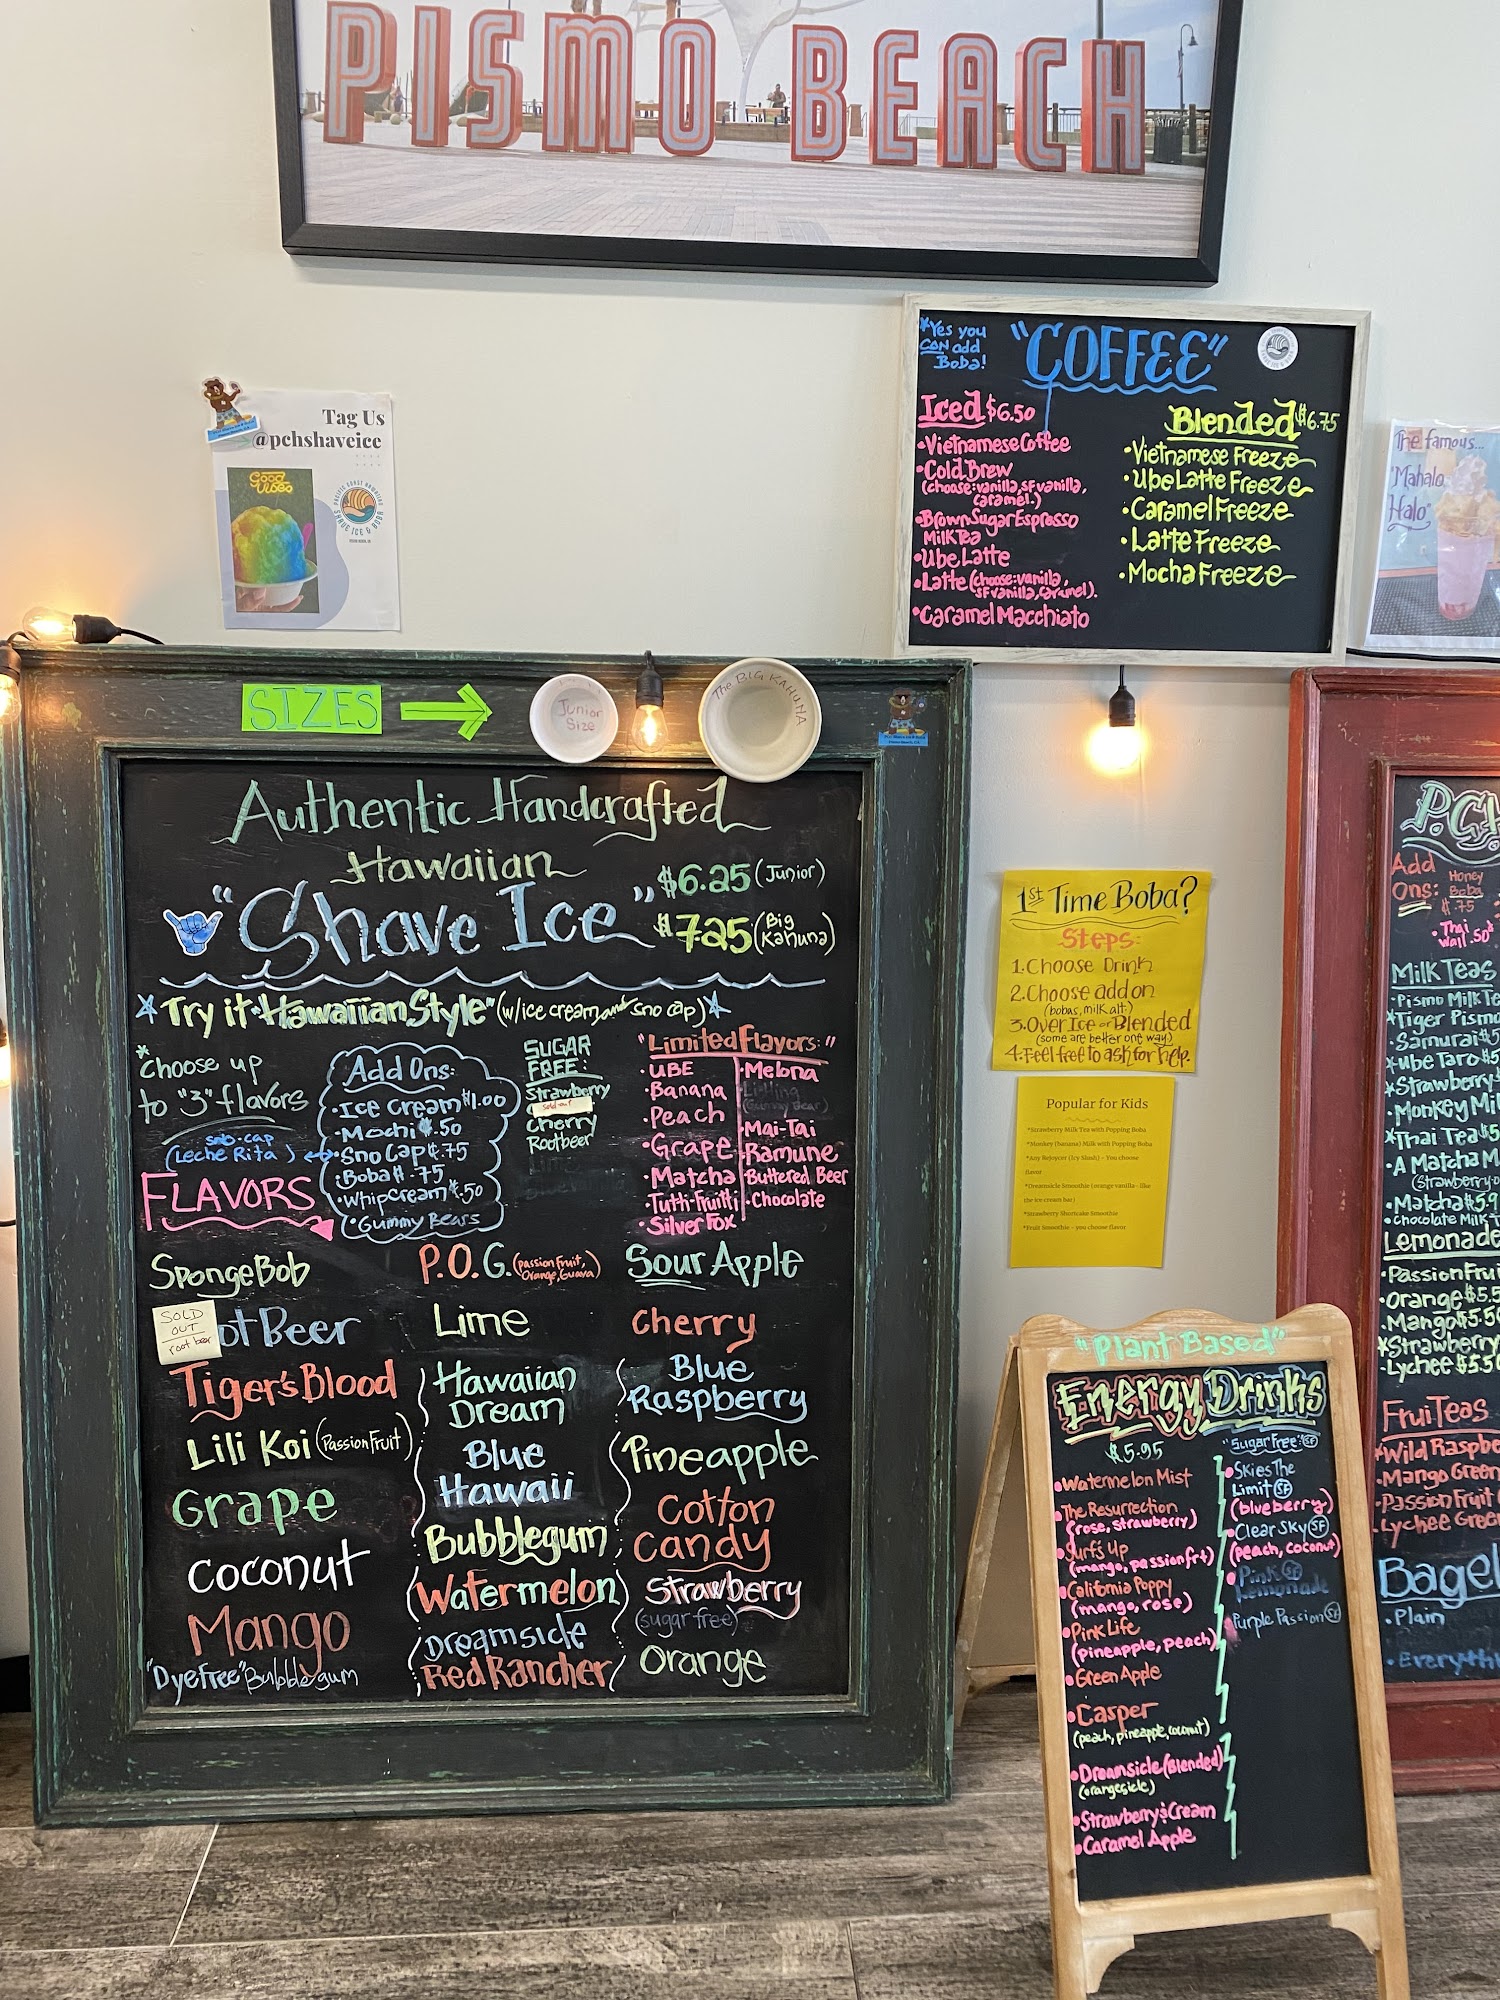 PISMO BEACH
Tag Us
@pchshaveice
Good
Vibes
PACIFIC COAST HAWAIIAN
SHAVE ICE & BOBA
*Yes you
CAN add
Boba!
"COFFEE"
Iced $6.50
•Vietnamese Coffee
•Cold Brew
(choose: vanilla, SF vanilla,
caramel.)
•Brown Sugar Espresso
Milk Tea
•Ube Latte
•Latte (choose: vanilla,
SF vanilla, caramel).
•Caramel Macchiato
Blended $6.75
•Vietnamese Freeze
•Ube Latte Freeze
•Caramel Freeze
•Latte Freeze
•Mocha Freeze
The famous...
"Mahalo
Halo"
SIZES
Junior
Size
The BIG KAHUNA
Authentic Handcrafted
Hawaiian
"Shave Ice"
$6.25 (Junior)
$7.25 (Big
Kahuna)
*Try it "Hawaiian Style" (w/ice cream and sno cap)*
*Choose up
to "3" flavors
sno-cap
(Leche Rita)
FLAVORS
Add Ons:
•Ice Cream $1.00
•Mochi $.50
•Sno Cap $.75
•Boba $.75
•Whip cream $.50
•Gummy Bears
SUGAR
FREE:
Strawberry
sold out
Cherry
Rootbeer
Lime
"Limited Flavors:"
•UBE
•Banana
•Peach
•Grape
•Matcha
•Tutti-Fruitti
•Silver Fox
•Melona
(Gummy Bear)
•Mai-Tai
•Ramune
•Buttered Beer
•Chocolate
SpongeBob
SOLD
OUT
root beer
ot Beer
Tiger's Blood
Lili Koi (Passion Fruit)
Grape
Coconut
Mango
"Dye Free" Bubblegum
P.O.G. (passion fruit,
Orange, Guava)
Lime
Hawaiian
Dream
Blue
Hawaii
Bubblegum
Watermelon
Dreamsicle
Red Rancher
Sour Apple
Cherry
Blue
Raspberry
Pineapple
Cotton
Candy
Strawberry
(sugar free)
Orange
1st Time Boba?
Steps:
1. Choose Drink
2. Choose add on
(bobas, milk alt.)
3. Over Ice or Blended
(some are better one way)
4. Feel free to ask for help.
Popular for Kids
*Strawberry Milk Tea with Popping Boba
*Monkey (banana) Milk with Popping Boba
*Any Rejoycer (Icy Slush) – You choose
flavor
*Dreamsicle Smoothie (orange vanilla- like
the ice cream bar)
*Strawberry Shortcake Smoothie
*Fruit Smoothie – you choose flavor
"Plant Based"
Energy Drinks
$5.95
•Watermelon Mist
•The Resurrection
(rose, strawberry)
•Surf's Up
(mango, passion frt)
•California Poppy
(mango, rose)
•Pink Life
(pineapple, peach)
•Green Apple
•Casper
(peach, pineapple, coconut)
•Dreamsicle (Blended)
(orangesicle)
•Strawberry & Cream
•Caramel Apple
"Sugar Free" SF
•Skies The
Limit SF
(blueberry)
•Clear Sky SF
(peach, coconut)
•Pink SF
Lemonade
•Purple Passion SF
P.C.
Add
Ons:
Honey
Boba
$.75
•Thai
Wall .50
Milk Teas
•Pismo Milk Te
*Tiger Pismo
•Samurai $5
*Ube Taro $5
*Strawberry
•Monkey Mil
*Thai Tea $5
•A Matcha M
(Strawberry
•Matcha $5.9
•Chocolate Milk T
Lemonade
•Passion Frui
•Orange $5.5
•Mango $5.50
*Strawberry
•Lychee $5.50
FruiTeas
*Wild Raspbe
•Mango Green
•Passion Fruit
•Lychee Green
Bagel
•Plain
•Everythi